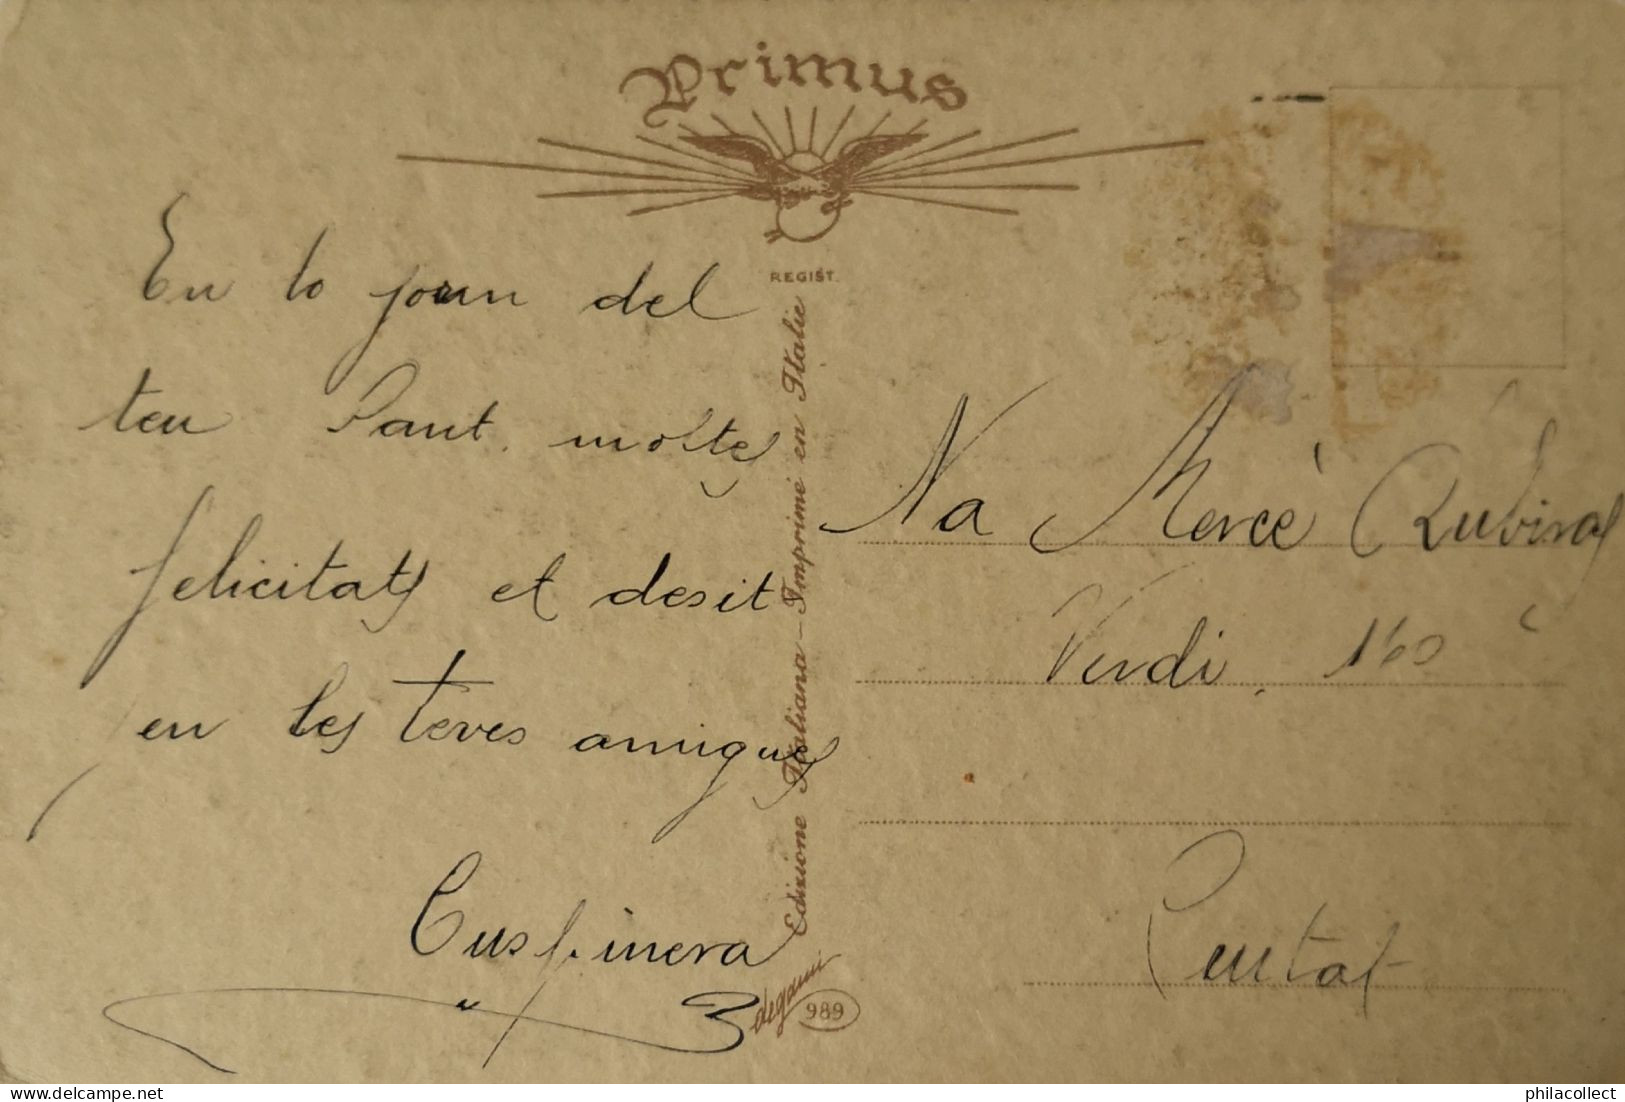 Primus
REGIST.
En lo joun del
teu Sant. moltes
felicitats et desit
en les teves amigues
Cuspinera
Edizione Italiana - Imprimé en Italie
degami
989
Na Mercè Rubiras
Verdi, 160
Ciutat
philacollect